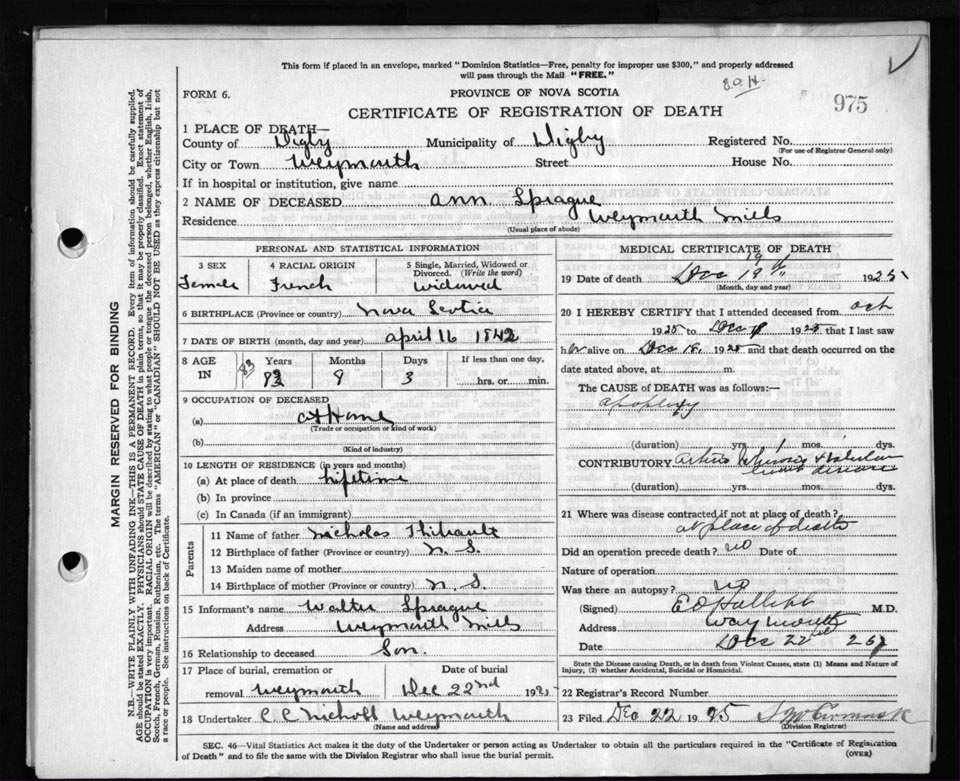 This form if placed in an envelope, marked "Dominion Statistics—Free, penalty for improper use $300," and properly addressed
will pass through the Mail "FREE."
FORM 6.
PROVINCE OF NOVA SCOTIA
975
CERTIFICATE OF REGISTRATION OF DEATH
1 PLACE OF DEATH—
County of Digby Municipality of Digby Registered No.
(For use of Registrar General only)
City or Town Weymouth Street House No.
If in hospital or institution, give name
2 NAME OF DECEASED Ann Sprague
Residence Weymouth Mills
(Usual place of abode)
PERSONAL AND STATISTICAL INFORMATION
3 SEX
Female
4 RACIAL ORIGIN
French
5 Single, Married, Widowed or
Divorced. (Write the word)
Widowed
6 BIRTHPLACE (Province or country) Nova Scotia
7 DATE OF BIRTH (month, day and year) April 16 1842
8 AGE
IN
83
Years
Months
Days
3
If less than one day,
hrs. or min.
9 OCCUPATION OF DECEASED
(a) At Home
(Trade or occupation or kind of work)
(b)
(Kind of industry)
10 LENGTH OF RESIDENCE (in years and months)
(a) At place of death Lifetime
(b) In province
(c) In Canada (if an immigrant)
Parents
11 Name of father Nicholas Thibault
12 Birthplace of father (Province or country) N. S.
13 Maiden name of mother
14 Birthplace of mother (Province or country) N. S.
15 Informant's name Walter Sprague
Address Weymouth Mills
16 Relationship to deceased Son.
17 Place of burial, cremation or
removal Weymouth
Date of burial
Dec 22nd 1925
18 Undertaker C C Nicholl Weymouth
(Name and address)
MEDICAL CERTIFICATE OF DEATH
19 Date of death Dec 19th 1925
(Month, day and year)
20 I HEREBY CERTIFY that I attended deceased from Oct
1925 to Dec 1925 that I last saw
her alive on Dec 18, 1925 and that death occurred on the
date stated above, at m.
The CAUSE OF DEATH was as follows:—
apoplexy
(duration) yrs. 1 mos. dys.
CONTRIBUTORY Arterio Sclerosis & Valvular
heart disease
(duration) yrs. mos. dys.
21 Where was disease contracted if not at place of death?
at place of death
Did an operation precede death? no Date of
Nature of operation
Was there an autopsy? no
(Signed) M.D.
Address Weymouth
Date Dec 22 1925
State the Disease causing Death, or in death from Violent Causes, state (1) Means and Nature of
Injury, (2) whether Accidental, Suicidal or Homicidal.
22 Registrar's Record Number
23 Filed Dec 22 1925
(Division Registrar)
SEC. 46—Vital Statistics Act makes it the duty of the Undertaker or person acting as Undertaker to obtain all the particulars required in the "Certificate of Registration
of Death" and to file the same with the Division Registrar who shall issue the burial permit.
(OVER)
MARGIN RESERVED FOR BINDING
N.B.—WRITE PLAINLY WITH UNFADING INK—THIS IS A PERMANENT RECORD. Every item of information should be carefully supplied.
AGE should be stated EXACTLY. PHYSICIANS should STATE CAUSE OF DEATH in plain terms, so that it may be properly classified. Exact statement of
OCCUPATION is very important. RACIAL ORIGIN will be described by stating to what people or tongue the deceased person belonged, whether English, Irish,
Scotch, French, German, Russian, Ruthenian, etc. The terms "AMERICAN" or "CANADIAN" SHOULD NOT BE USED as they express citizenship but not
a race or people. See instructions on back of Certificate.